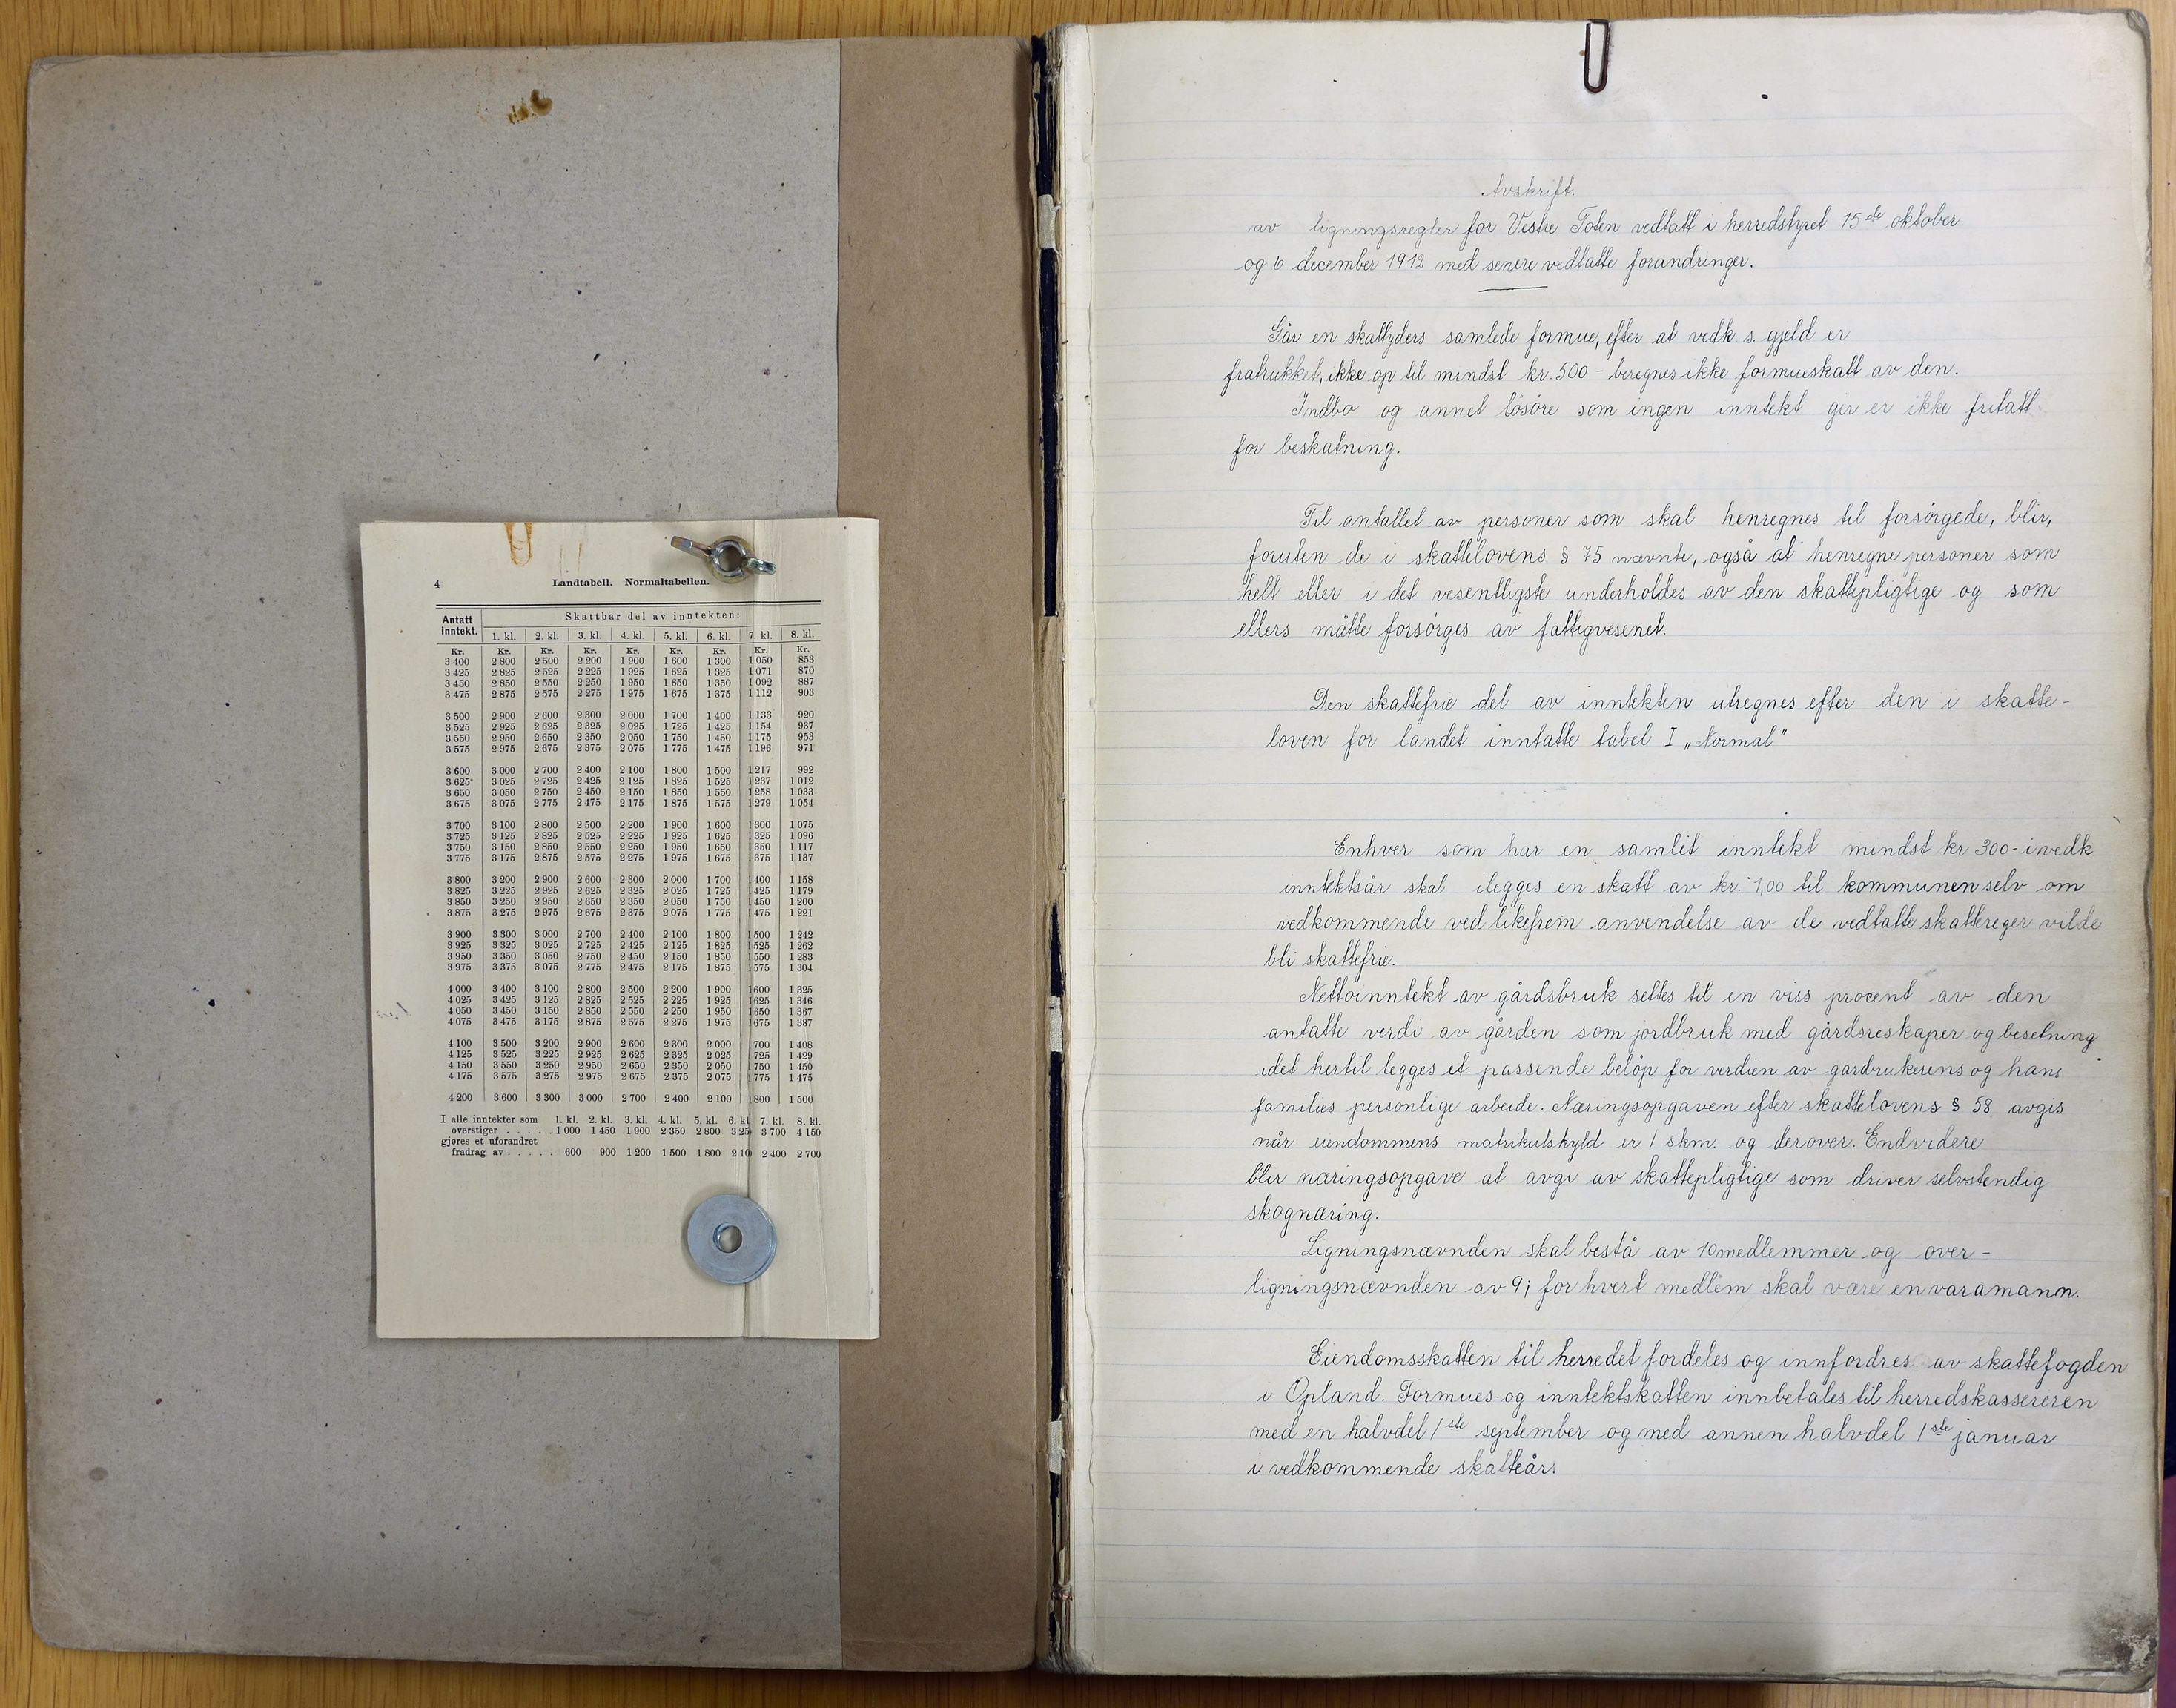 4
Landtabell. Normaltabellen.
Antatt inntekt. Skattbar del av inntekten:
1. kl. 2. kl. 3. kl. 4. kl. 5. kl. 6. kl. 7. kl. 8. kl.
Kr. Kr. Kr. Kr. Kr. Kr. Kr. Kr. Kr.
3 400 2 800 2 500 2 200 1 900 1 600 1 300 1 050 853
3 425 2 825 2 525 2 225 1 925 1 625 1 325 1 071 870
3 450 2 850 2 550 2 250 1 950 1 650 1 350 1 092 887
3 475 2 875 2 575 2 275 1 975 1 675 1 375 1 112 903
3 500 2 900 2 600 2 300 2 000 1 700 1 400 1 133 920
3 525 2 925 2 625 2 325 2 025 1 725 1 425 1 154 937
3 550 2 950 2 650 2 350 2 050 1 750 1 450 1 175 953
3 575 2 975 2 675 2 375 2 075 1 775 1 475 1 196 971
3 600 3 000 2 700 2 400 2 100 1 800 1 500 1 217 992
3 625 3 025 2 725 2 425 2 125 1 825 1 525 1 237 1 012
3 650 3 050 2 750 2 450 2 150 1 850 1 550 1 258 1 033
3 675 3 075 2 775 2 475 2 175 1 875 1 575 1 279 1 054
3 700 3 100 2 800 2 500 2 200 1 900 1 600 1 300 1 075
3 725 3 125 2 825 2 525 2 225 1 925 1 625 1 325 1 096
3 750 3 150 2 850 2 550 2 250 1 950 1 650 1 350 1 117
3 775 3 175 2 875 2 575 2 275 1 975 1 675 1 375 1 137
3 800 3 200 2 900 2 600 2 300 2 000 1 700 1 400 1 158
3 825 3 225 2 925 2 625 2 325 2 025 1 725 1 425 1 179
3 850 3 250 2 950 2 650 2 350 2 050 1 750 1 450 1 200
3 875 3 275 2 975 2 675 2 375 2 075 1 775 1 475 1 221
3 900 3 300 3 000 2 700 2 400 2 100 1 800 1 500 1 242
3 925 3 325 3 025 2 725 2 425 2 125 1 825 1 525 1 262
3 950 3 350 3 050 2 750 2 450 2 150 1 850 1 550 1 283
3 975 3 375 3 075 2 775 2 475 2 175 1 875 1 575 1 304
4 000 3 400 3 100 2 800 2 500 2 200 1 900 1 600 1 325
4 025 3 425 3 125 2 825 2 525 2 225 1 925 1 625 1 346
4 050 3 450 3 150 2 850 2 550 2 250 1 950 1 650 1 367
4 075 3 475 3 175 2 875 2 575 2 275 1 975 1 675 1 387
4 100 3 500 3 200 2 900 2 600 2 300 2 000 700 1 408
4 125 3 525 3 225 2 925 2 625 2 325 2 025 725 1 429
4 150 3 550 3 250 2 950 2 650 2 350 2 050 750 1 450
4 175 3 575 3 275 2 975 2 675 2 375 2 075 775 1 475
4 200 3 600 3 300 3 000 2 700 2 400 2 100 800 1 500
I alle inntekter som 1. kl. 2. kl. 3. kl. 4. kl. 5. kl. 6. kl 7. kl. 8. kl.
overstiger . . . . . 1 000 1 450 1 900 2 350 2 800 3 25 3 700 4 150
gjøres et uforandret
fradrag av . . . . . 600 900 1 200 1 500 1 800 2 10 2 400 2 700
Avskrift.
av ligningsregler for Vestre Toten vedtatt i herredstyret 15de oktober
og 6 december 1912 med senere vedtatte forandringer.
Går en skattyders samlede formue, efter at vedk. s. gjeld er
fratrukket, ikke op til mindst kr. 500 - beregnes ikke formueskatt av den.
Indbo og annet lösöre som ingen inntekt gir er ikke fritatt
for beskatning.
Til antallet av personer som skal henregnes til forsörgede, blir,
foruten de i skattelovens § 75 nævnte, også at henregne personer som
helt eller i det vesentligste underholdes av den skattepligtige og som
ellers måtte forsörges av fattigvesenet.
Den skattefrie del av inntekten utregnes efter den i skatte-
loven for landet inntatte tabel I „Normal"
Enhver som har en samlet inntekt mindst kr 300- i vedk
inntektsår skal ilegges en skatt av kr. 1,00 til kommunen selv om
vedkommende ved likefrem anvendelse av de vedtatte skattereger vilde
bli skattefrie.
Nettoinntekt av gårdsbruk settes til en viss procent av den
antatte verdi av gården som jordbruk med gårdsreskaper og besetning
idet hertil legges et passende belöp for verdien av gardrukerens og hans
families personlige arbeide. Næringsopgaven efter skattelovens § 58 avgis
når eiendommens matrikulskyld er 1 skm. og derover. Endvidere
blir næringsopgave at avgi av skattepligtige som driver selvstendig
skognæring.
Ligningsnævnden skal bestå av 10 medlemmer og over-
ligningsnævnden av 9; for hvert medlem skal være en varamann.
Eiendomsskatten til herredet fordeles og innfordres av skattefogden
i Opland. Formues- og inntektskatten innbetales til herredskassereren
med en halvdel 1ste september og med annen halvdel 1ste januar
i vedkommende skatteår.